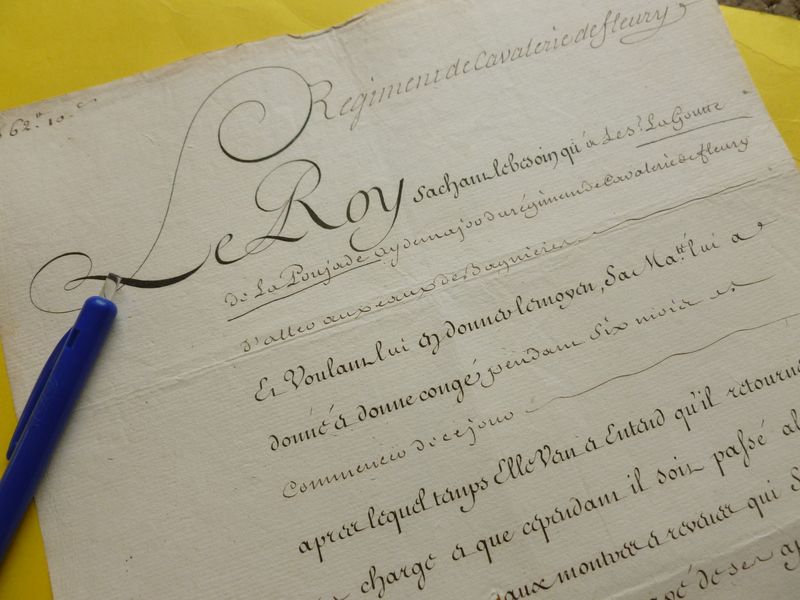 62. 10.
Regiment de Cavalerie de fleury
Le Roy sachant le besoin qu'a Le S.r La Goutte
de La Poujade aydemajor du régiment de Cavalerie de fleury
d'aller aux eaux de Bagnieres
Et Voulant lui en donner le moyen, Sa Ma.tté lui a
donné et donne congé pendant six mois et
Commencer de ce jour
apres lequel temps Elle Veut et Entend qu'il retourne
charge et que cependant il soit passé
aux montres et reveues qui
de ses